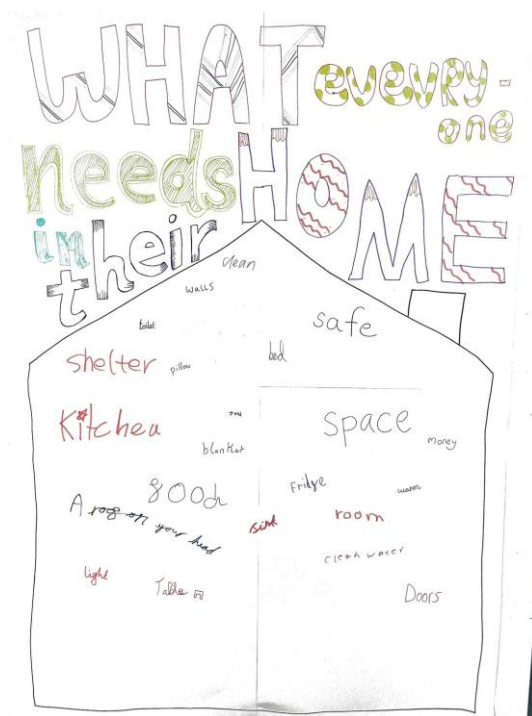 WHAT evevry-
one
needs HOME
in their
clean
walls
toilet
safe
shelter
pillow
bed
Kitchen
blanket
space
money
good
fridge
water
A roof on your head
sink
room
clean water
light
Table
Doors